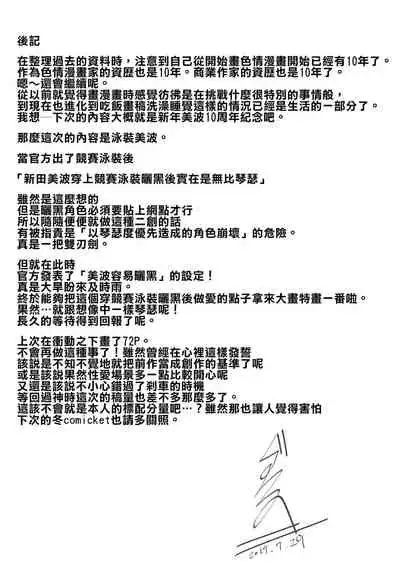 後記
在整理過去的資料時，注意到自己從開始畫色情漫畫開始已經有10年了。
作為色情漫畫家的資歷也是10年。商業作家的資歷也是10年了。
嗯～還會繼續呢。
從以前就覺得畫漫畫時感覺彷彿是在挑戰什麼很特別的事情般，
到現在也進化到吃飯畫稿洗澡睡覺這樣的情況已經是生活的一部分了。
我想…下次的內容大概就是新年美波10周年紀念吧。
那麼這次的內容是泳裝美波。
當官方出了競賽泳裝後
「新田美波穿上競賽泳裝曬黑後實在是無比琴瑟」
雖然是這麼想的
但是曬黑角色必須要貼上網點才行
所以隨隨便便就做這種二創的話
有被指責是「以琴瑟度優先造成的角色崩壞」的危險。
真是一把雙刃劍。
但就在此時
官方發表了「美波容易曬黑」的設定！
真是大旱盼來及時雨。
終於能夠把這個穿競賽泳裝曬黑後做愛的點子拿來大畫特畫一番啦。
果然…就跟想像中一樣琴瑟呢！
長久的等待得到回報了呢。
上次在衝動之下畫了72P。
不會再做這種事了！雖然曾經在心裡這樣發誓
該說是不知不覺地就把前作當成創作的基準了呢
或是該說果然性愛場景多一點比較開心呢
又還是該說不小心錯過了剎車的時機
等回過神時這次的稿量也差不多那麼多了。
這該不會就是本人的標配分量吧…？雖然那也讓人覺得害怕
下次的冬comicket也請多關照。
2017.7.29